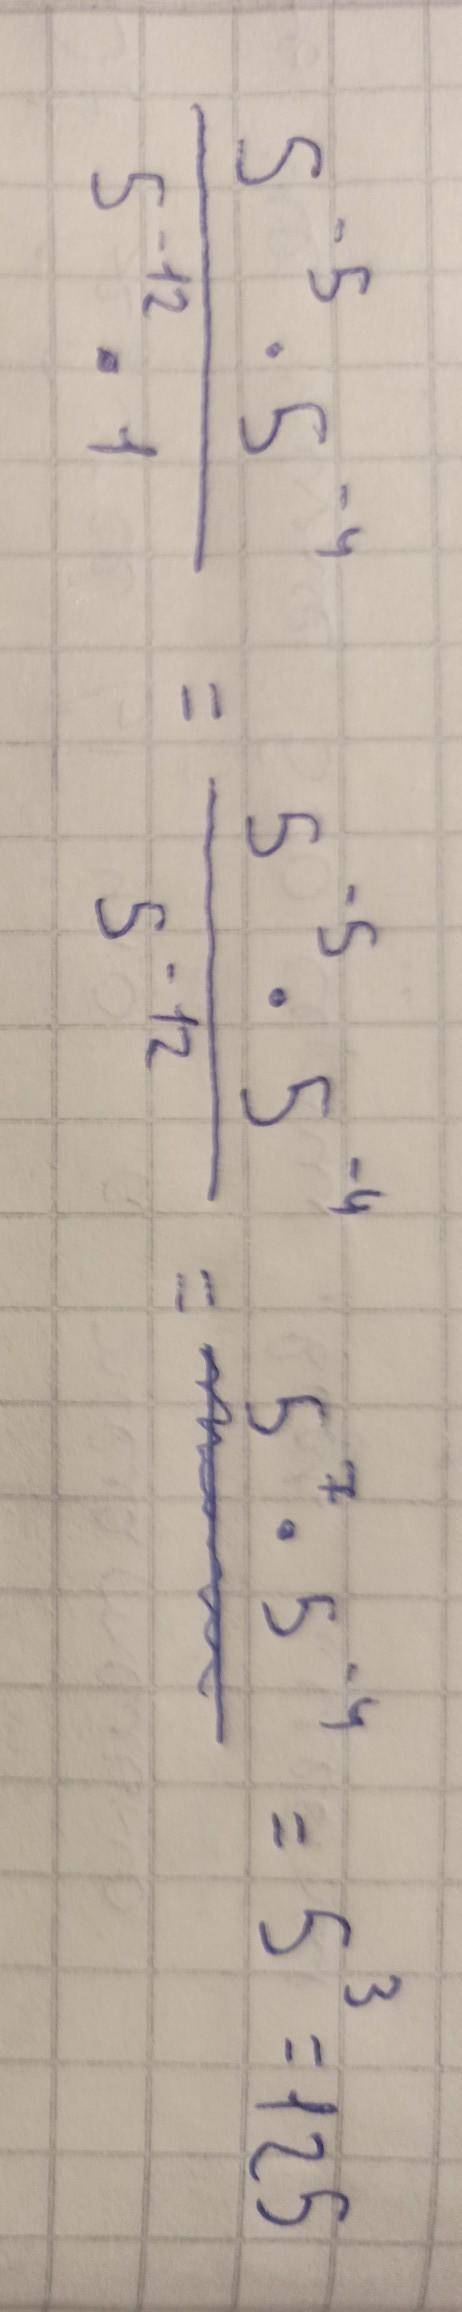 5⁻⁵ · 5⁻⁴ / 5⁻¹² · 1 = 5⁻⁵ · 5⁻⁴ / 5⁻¹² = 5⁷ · 5⁻⁴ = 5³ = 125